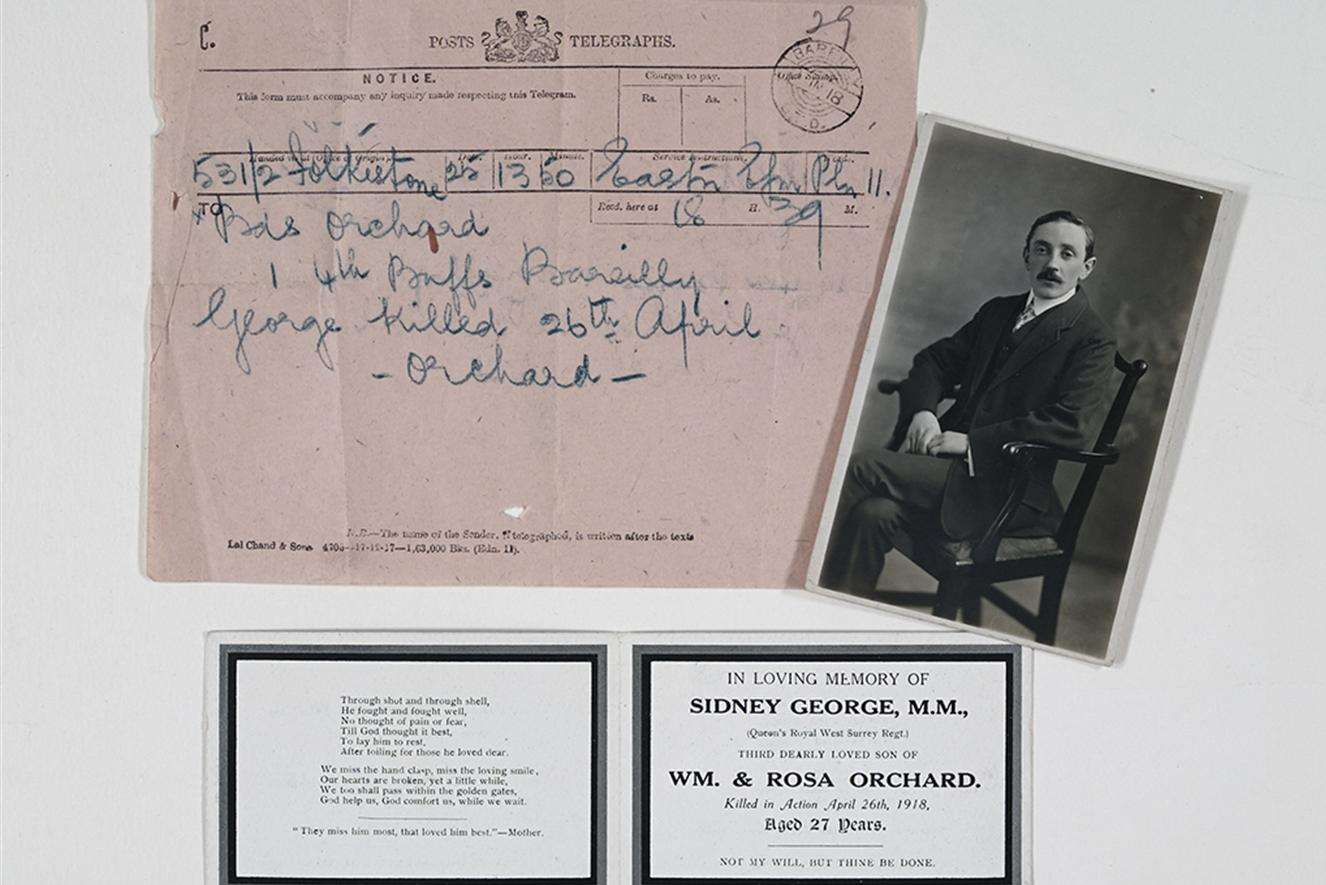 29
C. POSTS TELEGRAPHS.
NOTICE.
This form must accompany any inquiry made respecting this Telegram.
Charges to pay.
Rs. As.
Office Stamp.
BAREILLY
18
D.
Handed in at (Office of Origin). Date. Hour. Minute. Service Instructions.
531/2 Folkestone 25 13 50 Eastn Pln 11.
TO
Recd. here at 18 H. 39 M.
Bds Orchard
1 4th Buffs Bareilly
George killed 26th April
- Orchard -
N.B.—The name of the Sender, if telegraphed, is written after the text.
Lal Chand & Sons 17-12-17—1,63,000 Bks. (Edn. 11).
Through shot and through shell,
He fought and fought well,
No thought of pain or fear,
Till God thought it best,
To lay him to rest,
After toiling for those he loved dear.
We miss the hand clasp, miss the loving smile,
Our hearts are broken, yet a little while,
We too shall pass within the golden gates,
God help us, God comfort us, while we wait.
"They miss him most, that loved him best."—Mother.
IN LOVING MEMORY OF
SIDNEY GEORGE, M.M.,
(Queen's Royal West Surrey Regt.)
THIRD DEARLY LOVED SON OF
WM. & ROSA ORCHARD.
Killed in Action April 26th, 1918,
Aged 27 Years.
NOT MY WILL, BUT THINE BE DONE.